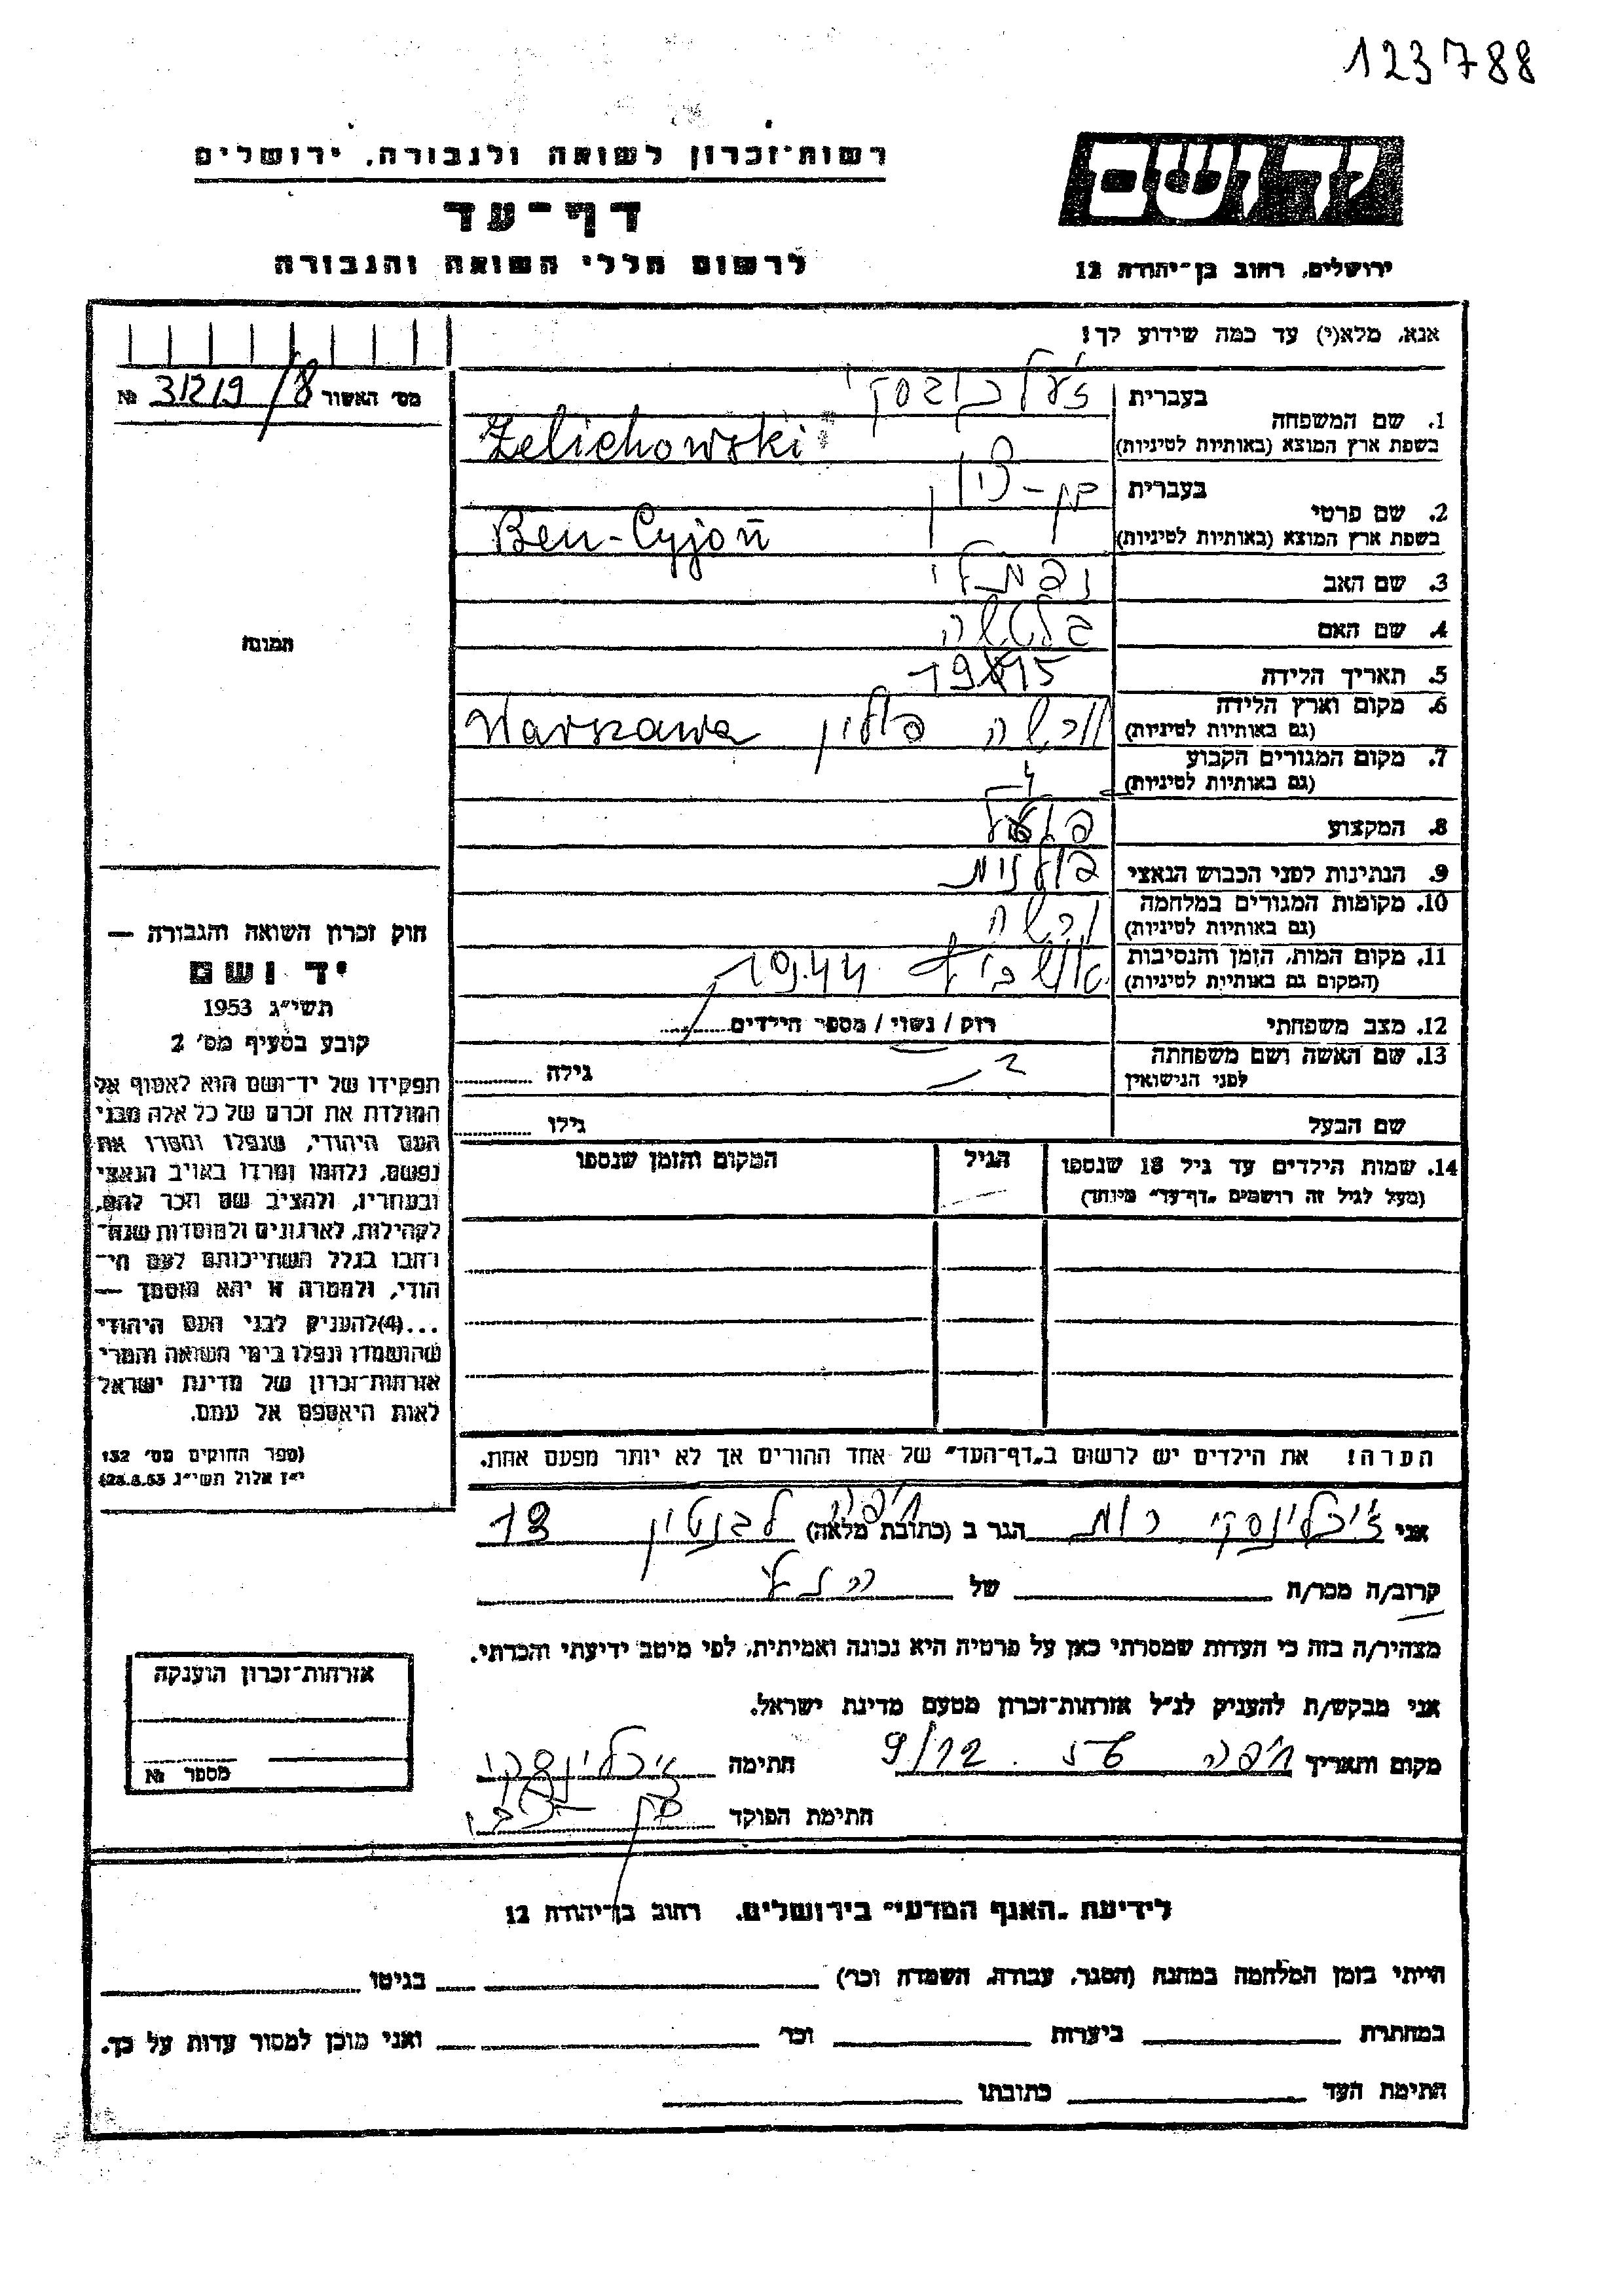 123788
רשות־זכרון לשואה ולגבורה, ירושלים
דף־עד
לרשום חללי השואה והגבורה
יד ושם
ירושלים, רחוב בן־יהודה 12
אנא, מלא(י) עד כמה שידוע לך!
מס' האשור 31219/8 №
1. שם המשפחה
בעברית
בשפת ארץ המוצא (באותיות לטיניות) Żelichowski
2. שם פרטי
בעברית בן-ציון
בשפת ארץ המוצא (באותיות לטיניות) Ben-Cyjon
3. שם האב נפתלי
4. שם האם
5. תאריך הלידה 1915
6. מקום וארץ הלידה
(גם באותיות לטיניות) ורשה פולין Warszawa
7. מקום המגורים הקבוע
(גם באותיות לטיניות)
8. המקצוע פועל
9. הנתינות לפני הכבוש הנאצי פולנית
10. מקומות המגורים במלחמה
(גם באותיות לטיניות) ורשה
11. מקום המות, הזמן והנסיבות
(המקום גם באותיות לטיניות) 1944
12. מצב משפחתי רוק / נשוי / מספר הילדים
13. שם האשה ושם משפחתה
לפני הנישואין
גילה
שם הבעל
גילו
14. שמות הילדים עד גיל 18 שנספו
(מעל לגיל זה רושמים "דף־עד" מיוחד)
הגיל
המקום והזמן שנספו
הערה! את הילדים יש לרשום ב"דף־העד" של אחד ההורים אך לא יותר מפעם אחת.
התמונה
חוק זכרון השואה והגבורה —
יד ושם
תשי"ג 1953
קובע בסעיף מס' 2
תפקידו של יד־ושם הוא לאסוף אל
המולדת את זכרם של כל אלה מבני
העם היהודי, שנפלו ומסרו את
נפשם, נלחמו ומרדו באויב הנאצי
ובעוזריו, ולהציב שם וזכר להם,
לקהילות, לארגונים ולמוסדות שנח־
רבו בגלל השתייכותם לעם הי־
הודי, ולמטרה זו יהא מוסמך —
...(4)להעניק לבני העם היהודי
שהושמדו ונפלו בימי השואה והמרי
אזרחות־זכרון של מדינת ישראל
לאות היאספם אל עמם.
(ספר החוקים מס' 132
י"ז אלול תשי"ג 28.8.53)
אני רות הגר ב (כתובת מלאה) חיפה לבנטין 13
קרוב/ה מכר/ה של
מצהיר/ה בזה כי העדות שמסרתי כאן על פרטיה היא נכונה ואמיתית, לפי מיטב ידיעתי והכרתי.
אני מבקש/ת להעניק לנ"ל אזרחות־זכרון מטעם מדינת ישראל.
מקום ותאריך חיפה 9/12 חתימה
חתימת הפוקד
אזרחות־זכרון הוענקה
מספר №
לידיעת "האגף המדעי" בירושלים, רחוב בן־יהודה 12
הייתי בזמן המלחמה במחנה (הסגר, עבודה, השמדה וכו') בגיטו
במחתרת ביערות וכו' ואני מוכן למסור עדות על כך.
חתימת העד כתובתו